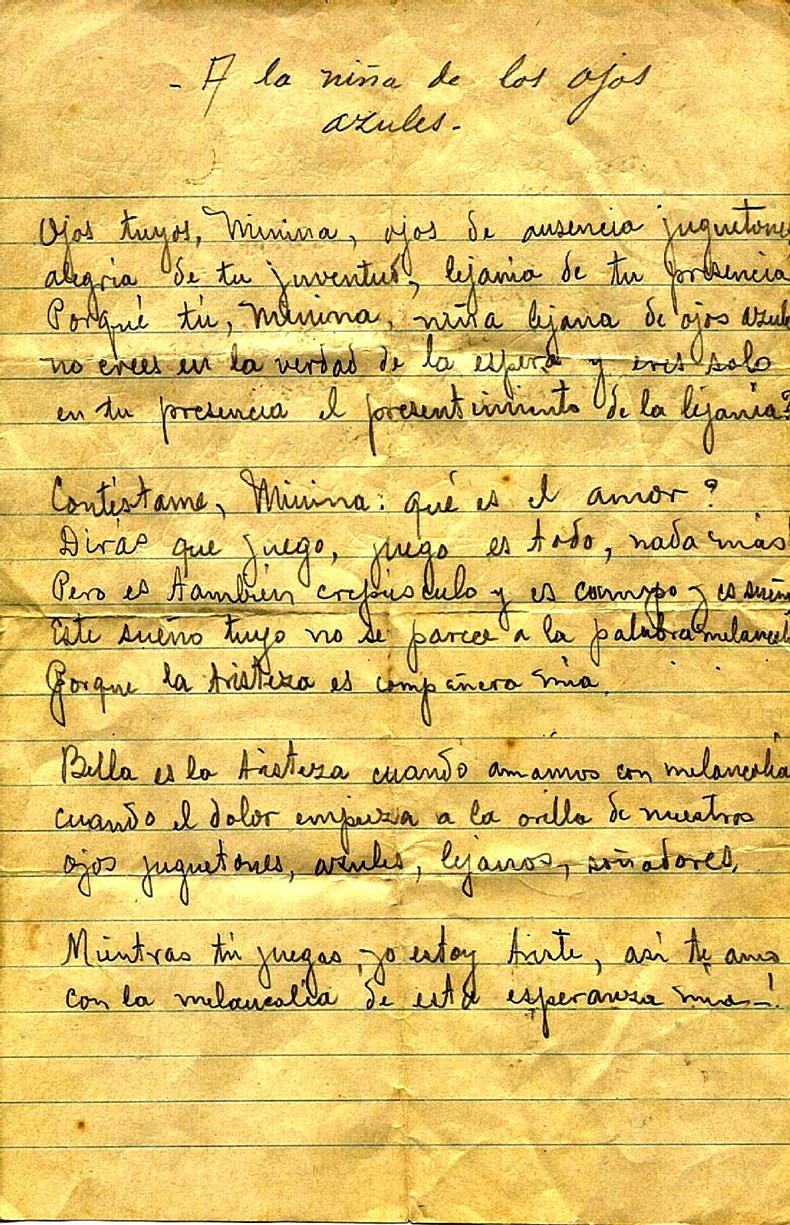 - A la niña de los ojos
azules.-
Ojos tuyos, Minina, ojos de ausencia juguetones
alegría de tu juventud, lejanía de tu presencia
Porqué tú, Minina, niña lejana de ojos azul
no crees en la verdad de la espera y eres solo
en tu presencia el presentimiento de la lejanía?
Contéstame, Minina: qué es el amor?
Dirás que juego, juego es todo, nada más
Pero es también crepúsculo y es campo y es sueño
Este sueño tuyo no se parece a la palabra melancol
Porque la tristeza es compañera mía.
Bella es la tristeza cuando amamos con melancolía
cuando el dolor empieza a la orilla de nuestros
ojos juguetones, azules, lejanos, soñadores.
Mientras tú juegas, yo estoy triste, así te amo
con la melancolía de esta esperanza mía-!